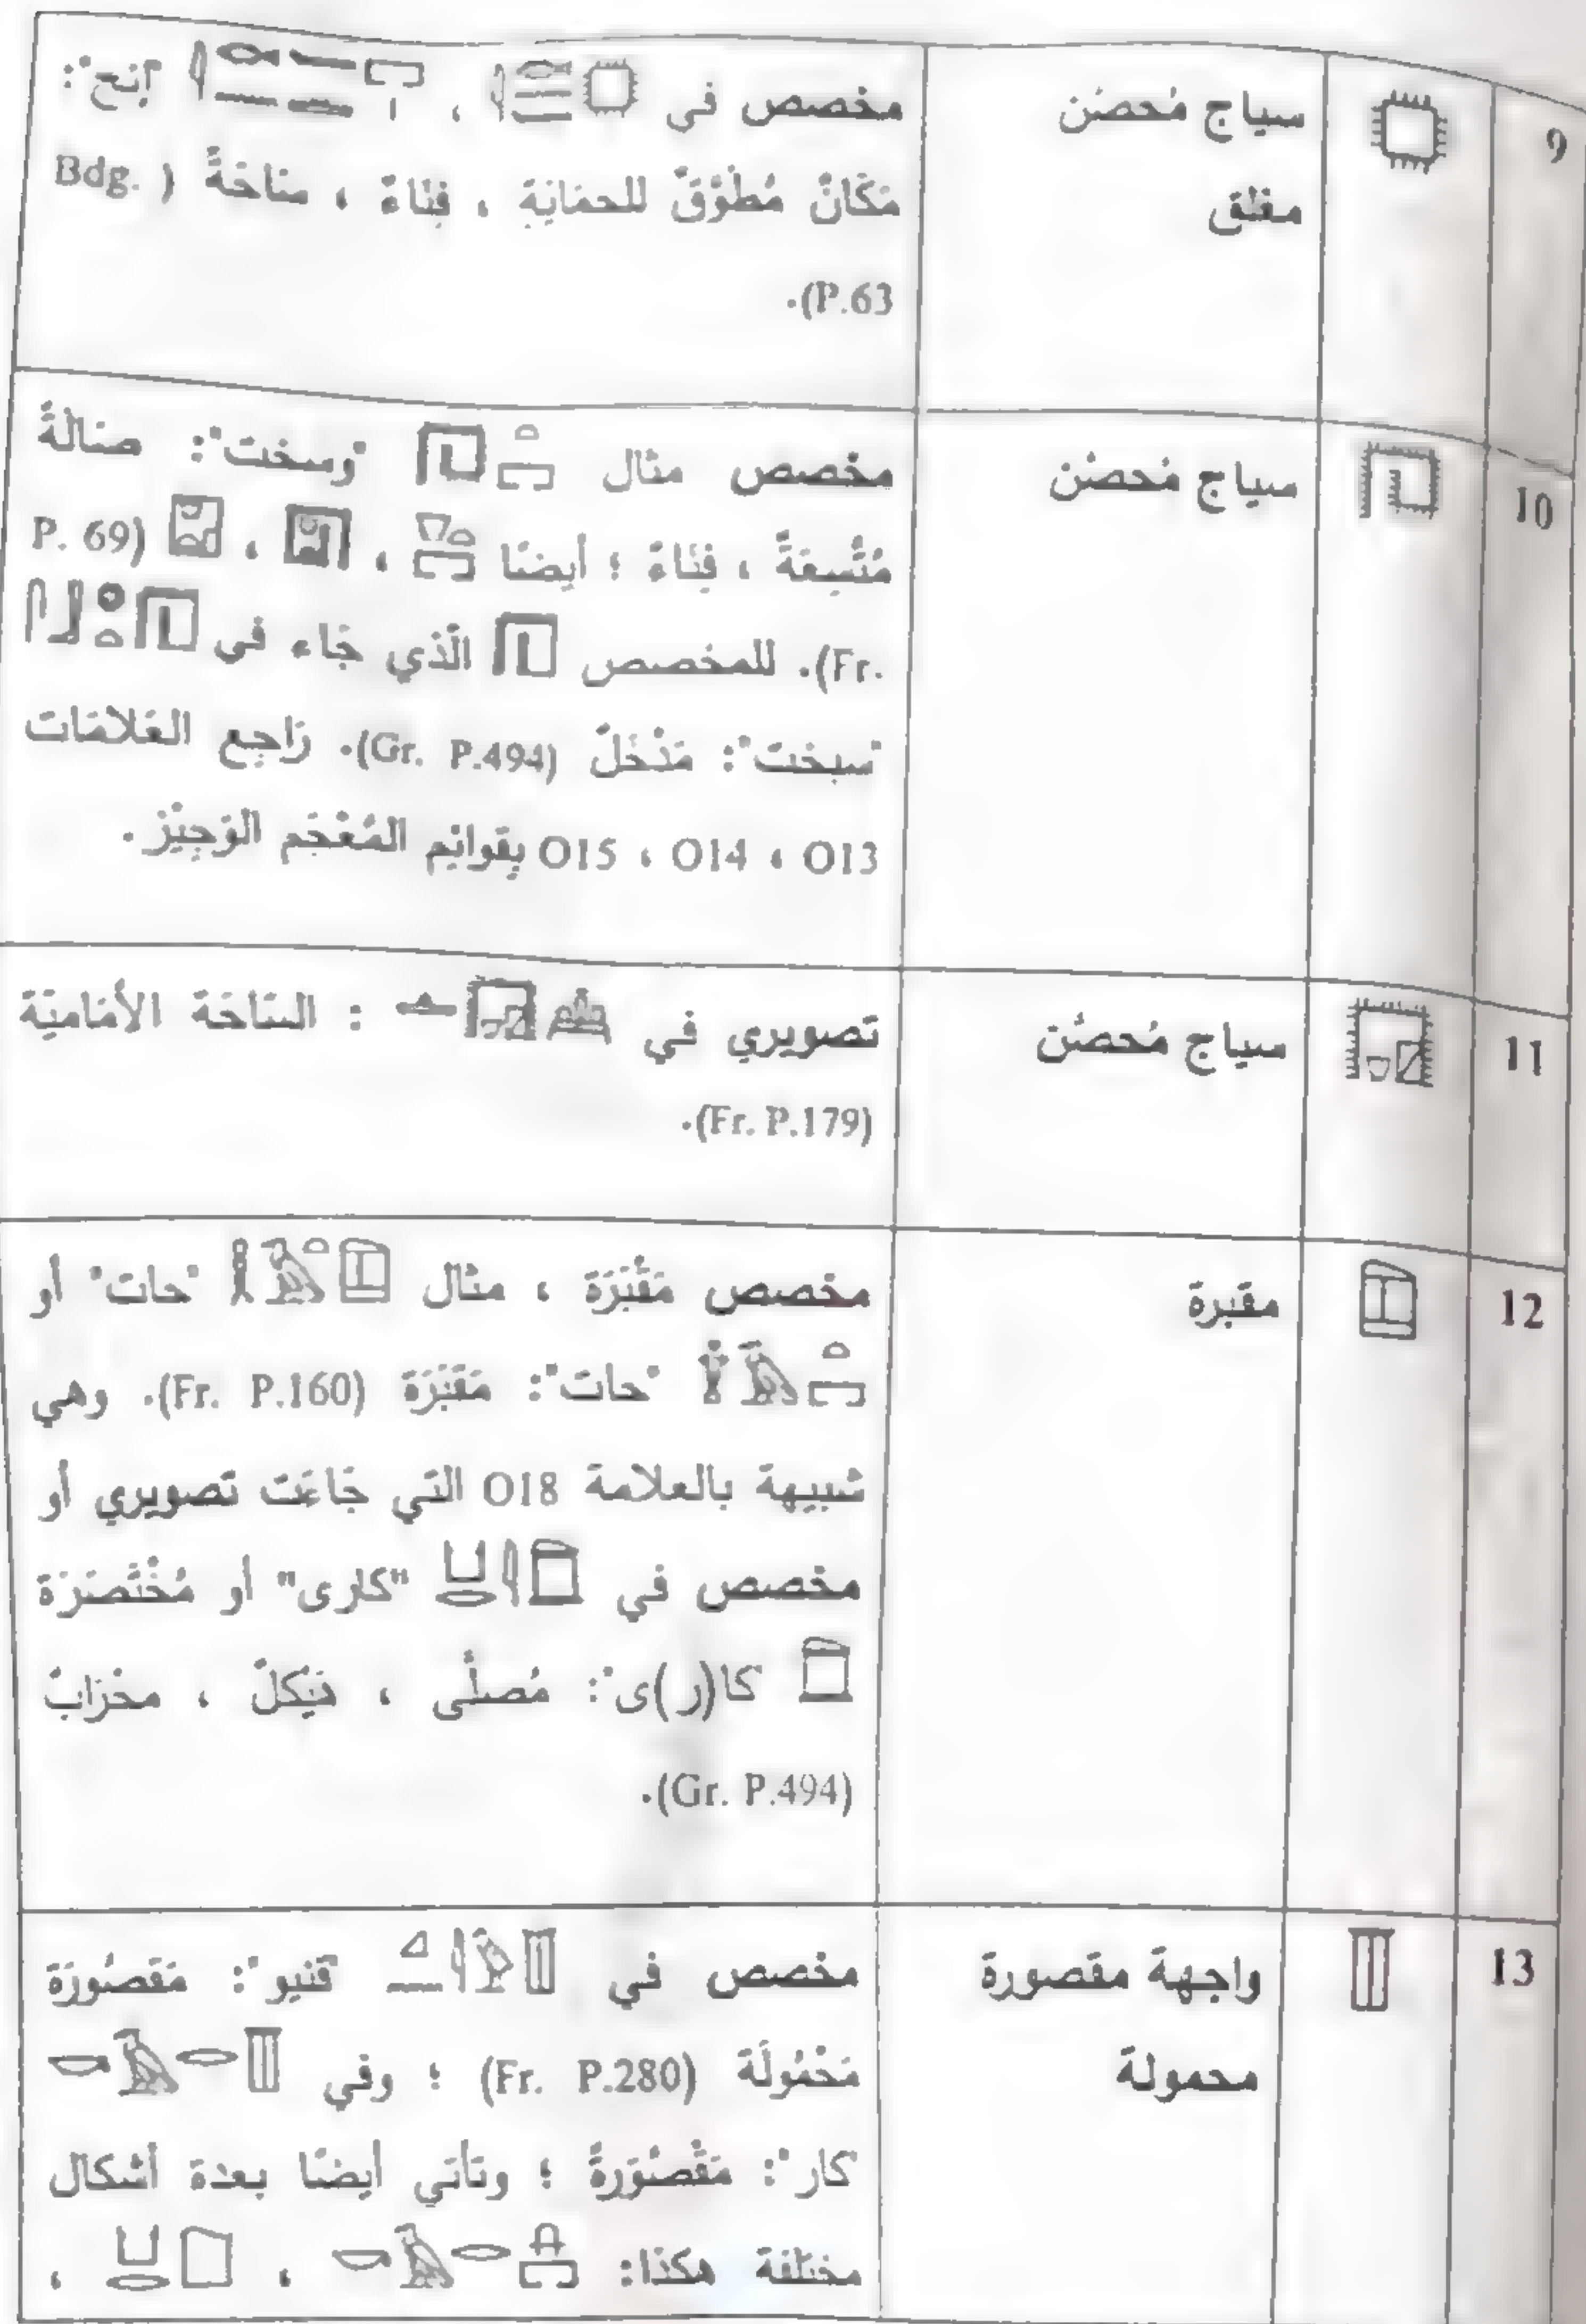 9
سياج مُحصَّن
مغلق
مخصص في ، "إنح":
مَكَانٌ مُطَوَّقٌ للحمَايَةِ ، فِنَاءٌ ، سَاحَةٌ ( Bdg.
P.63).
10
سياج مُحصَّن
مخصص مثال "وسخت": صَالَةٌ
مُتَّسِعَةٌ ، فِنَاءٌ ؛ أيضًا ، ، (P. 69
Fr.). للمخصص الَّذي جَاء في
"سبخت": مَدْخَلٌ (Gr. P.494). رَاجِع العَلامَات
O13 ، O14 ، O15 بِقوائِم المُعْجَم الوَجِيْز.
11
سياج مُحصَّن
تصويري في : السَّاحَة الأمَاميَّة
(Fr. P.179).
12
مقبرة
مخصص مَقْبَرَة ، مثال "حات" أو
"حات": مَقْبَرَة (Fr. P.160). وهي
شبيهة بالعلامة O18 التي جَاءَت تصويري أو
مخصص في "كارى" أو مُخْتَصَرَة
"كا(ر)ى": مُصلَّى ، هَيْكلٌ ، محْرَابٌ
(Gr. P.494).
13
واجهة مقصورة
محمولة
مخصص في "قنيو": مَقصُورَة
مَحْمُولَة (Fr. P.280) ؛ وفي
"كار": مَقْصُوَرةً ؛ وتأتي أيضًا بعدة أشكال
مختلفة هكذا: ، ،